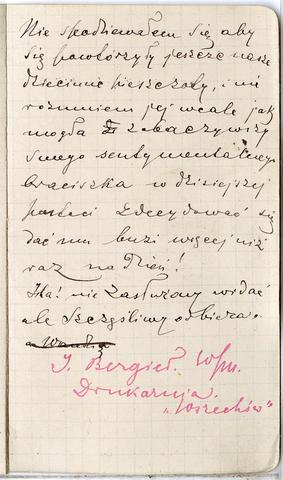 Nie spodziewałem się aby
się powtórzyły jeszcze nasze
dziecinne pieszczoty, i nie
rozumiem jej wcale jak
mogła zobaczywszy
swego sentymentalnego
braciszka w dzisiejszej
postaci zdecydować się
dać mu buzi więcej niż
raz na dzień!
Ha! nie zasłużony widać
ale szczęśliwy odbiera.
J. Bergiel. W/m.
Drukarnia.
"Wszechów"